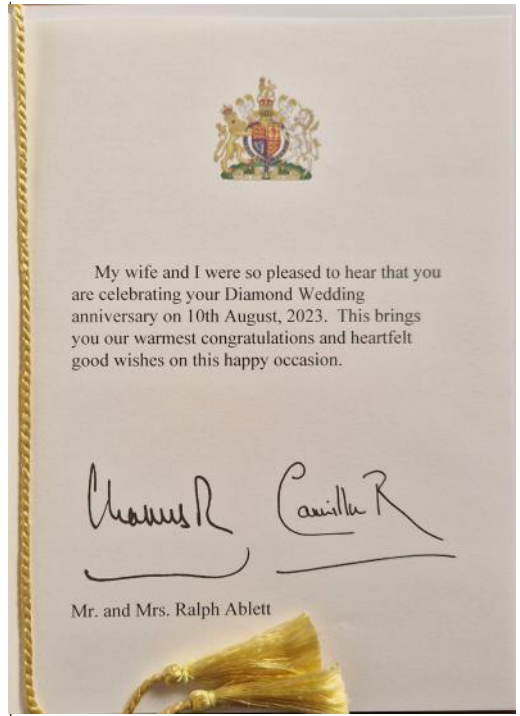 My wife and I were so pleased to hear that you
are celebrating your Diamond Wedding
anniversary on 10th August, 2023.  This brings
you our warmest congratulations and heartfelt
good wishes on this happy occasion.
Charles R Camilla R
Mr. and Mrs. Ralph Ablett